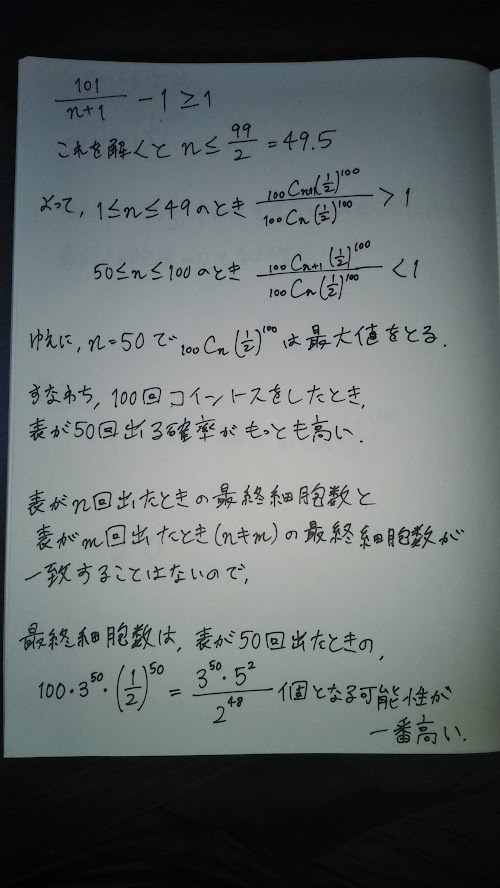 101/(n+1) - 1 ≥ 1
これを解くと n ≤ 99/2 = 49.5
よって, 1≤n≤49のとき 100Cn+1(1/2)^100 / 100Cn(1/2)^100 > 1
50≤n≤100のとき 100Cn+1(1/2)^100 / 100Cn(1/2)^100 < 1
ゆえに, n=50で 100Cn(1/2)^100 は最大値をとる.
すなわち, 100回コイントスをしたとき,
表が50回出る確率がもっとも高い.
表がn回出たときの最終細胞数と
表がm回出たとき(n≠m)の最終細胞数が
一致することはないので,
最終細胞数は, 表が50回出たときの,
100・3^50・(1/2)^50 = 3^50・5^2 / 2^48 個となる可能性が
一番高い.